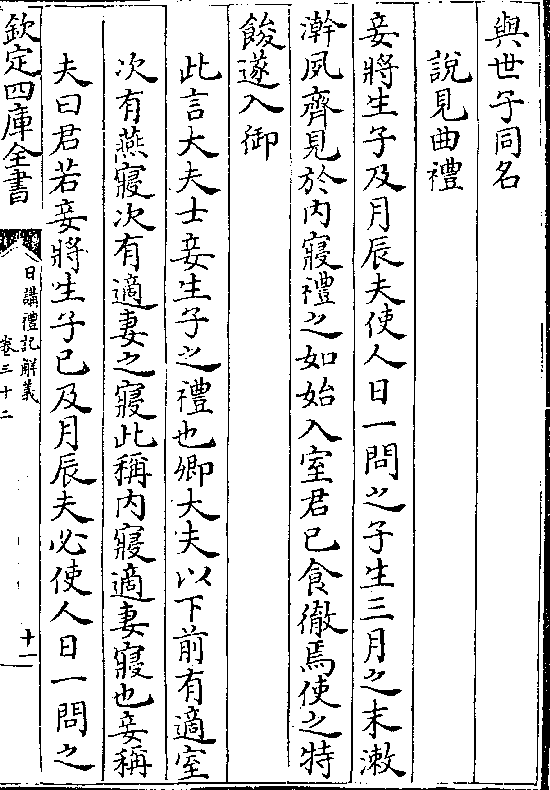 與世子同名
說見曲禮
妾將生子及月辰夫使人日一問之子生三月之末漱
澣夙齊見於內寢禮之如始入室君已食徹焉使之特
餕遂入御
此言大夫士妾生子之禮也卿大夫以下前有適室
次有燕寢次有適妻之寢此稱內寢適妻寢也妾稱
夫曰君若妾將生子已及月辰夫必使人日一問之
欽定四庫全書
日講禮記解義
卷三十二
十一